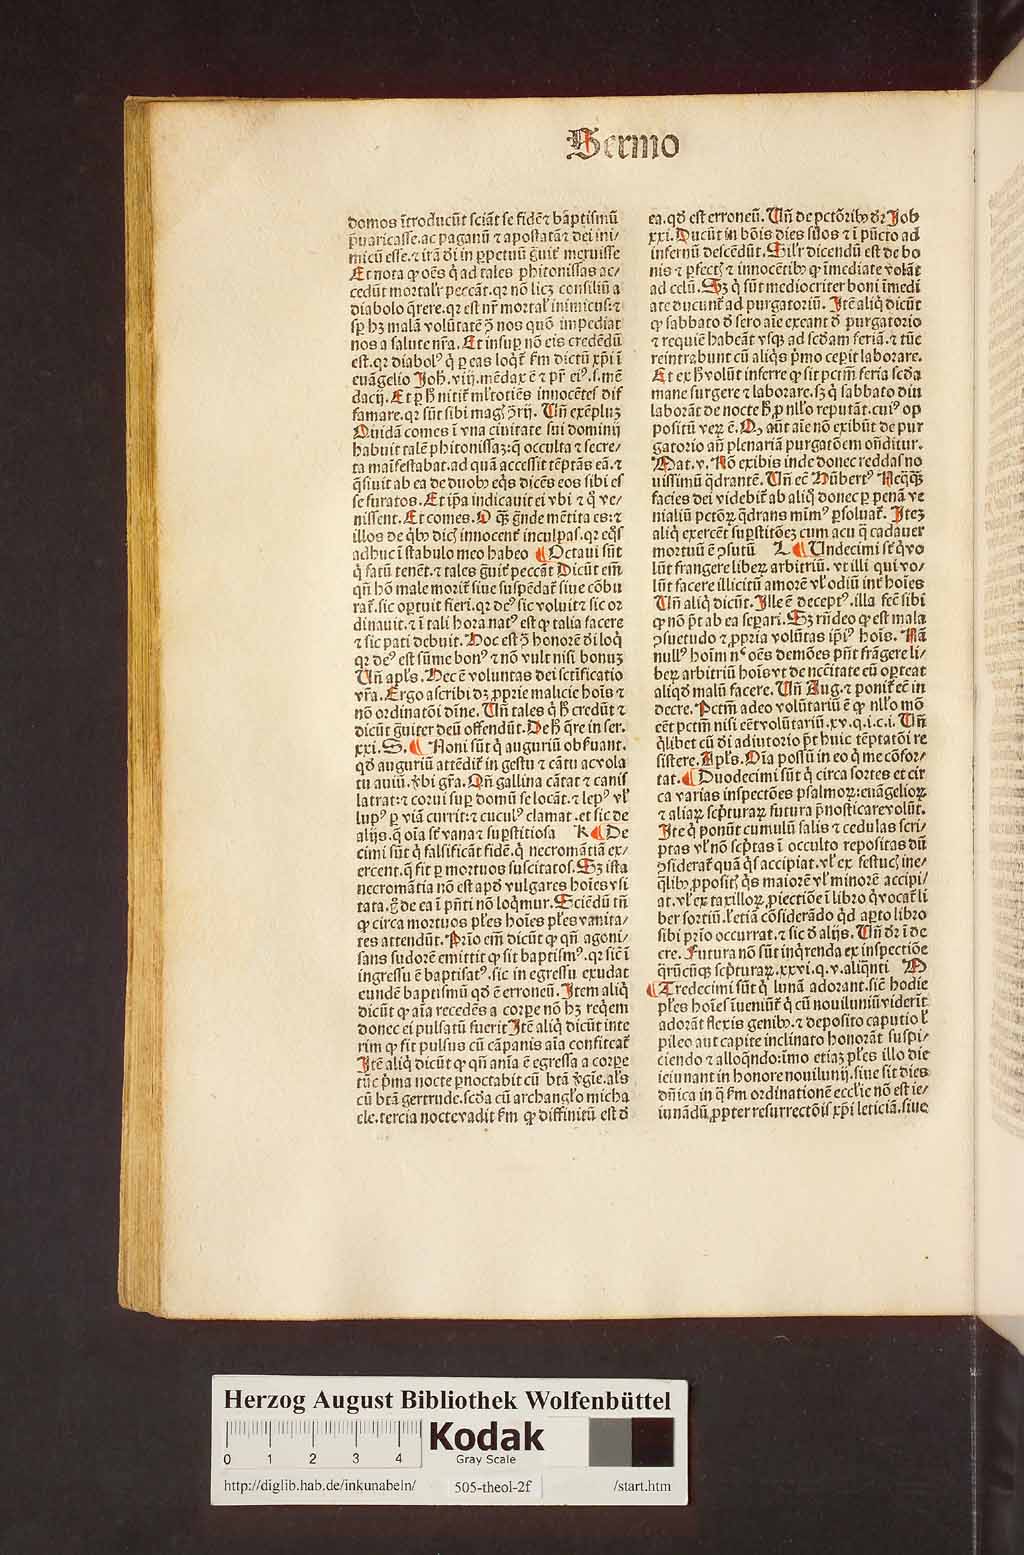 Sermo
domos ītroducūt sciāt se fidē ⁊ baptismū
p̄uaricasse. ac paganū ⁊ apostatā ⁊ dei ini⸗
micū esse. ⁊ irā dī in ꝑpetuū g̈uit᷑ meruisse
Et nota ꝙ oēs q̇ ad tales phitonissas ac⸗
cedūt mortalr̄ peccāt. qꝛ nō licꝫ consiliū a
diabolo q̄rere. qꝛ est nr̄ mortal̓ inimicus: ⁊
sꝑ hꝫ malā volūtatē ↄ̄ nos quō impediat
nos a salute nr̄a. Et insuꝑ nō eis credēdū
est. qꝛ diabolꝰ q̇ ꝑ eas loqt᷑ ẜm dictū xp̄i ī
euāgelio Joh. viij. mēdax ē ⁊ pr̄ eiꝰ. s. mē
dacij. Et ꝑ ħ nitit᷑ ml̓totiēs innocētes dif
famare. qꝛ sūt sibi magꝭ ↄ̄rij. Vn̄ exēpluꝫ
Quidā comes ī vna ciuitate sui dominij
habuit talē phitonissaꝫ: q̄ occulta ⁊ secre⸗
ta maīfestabat. ad quā accessit tēptās eā. ⁊
q̄siuit ab ea de duobꝰ eq̇s dicēs eos sibi es
se furatos. Et ip̄a indicauit ei vbi ⁊ q̇ ve⸗
nissent. Et comes. O q̄ꝫ g̈nde mētita es: ⁊
illos de q̇bꝰ dicꝭ innocent᷑ inculpas. qꝛ eq̇s
adhuc ī stabulo meo habeo ¶ Octaui sūt
q̇ fatū tenēt. ⁊ tales g̈uit᷑ peccāt Dicūt em̄
qn̄ hō male morit᷑ siue suspēdat᷑ siue cōbu
rat᷑. sic oꝑtuit fieri. qꝛ deꝰ sic voluit ⁊ sic or
dinauit. ⁊ ī tali hora natꝰ est ꝙ talia facere
⁊ sic pati debuit. Hoc est ↄ̄ honorē dī loq̇
qꝛ deꝰ est sūme bonꝰ ⁊ nō vult nisi bonuꝫ
Vn̄ apl̓s. Hec ē voluntas dei sctificatio
vr̄a. Ergo ascribi dꝫ ꝓprie malicie hoīs ⁊
nō ordinatōi dīne. Vn̄ tales q̇ ħ credūt ⁊
dicūt g̈uiter deū offendūt. De ħ q̄re in ser.
xxi. S. ¶ Noni sūt q̇ auguriū obẜuant.
qd̓ auguriū attēdit᷑ in gestu ⁊ cātu ac vola
tu auiū. v̓bi gr̄a. Qn̄ gallina cātat ⁊ canis
latrat: ⁊ corui suꝑ domū se locāt. ⁊ lepꝰ vl̓
lupꝰ ꝑ viā currit: ⁊ cuculꝰ clamat. et sic de
alijs. q̄ oīa st̄ vana ⁊ suꝑstitiosa K ¶ De
cimi sūt q̇ falsificāt fidē. q̇ necromātiā ex⸗
ercent. q̄ fit ꝑ mortuos suscitatos. Sꝫ ista
necromātia nō est apd̓ vulgares hoīes vsi
tata. g̊ de ea ī pn̄ti nō loq̇mur. Sciēdū tn̄
ꝙ circa mortuos pl̓es hoīes pl̓es vanita⸗
tes attendūt. Prīo em̄ dicūt ꝙ qn̄ agoni⸗
sans sudorē emittit ꝙ sit baptismꝰ. qꝛ sic̄ ī
ingressu ē baptisatꝰ. sic in egressu exudat
eundē baptismū qd̓ ē erroneū. Item aliq̇
dicūt ꝙ aīa recedēs a corꝑe nō hꝫ req̇em
donec ei pulsatū fuerit Jtē aliq̇ dicūt inte
rim ꝙ fit pulsus cū cāpanis aīa confitcat᷑
Jtē aliq̇ dicūt ꝙ qn̄ anīa ē egressa a corꝑe
tūc p̄ma nocte ꝑnoctabit cū btā v̓gīe. al̓s
cū btā gertrude. scd̓a cū archangl̓o micha
ele. tercia nocte vadit ẜm ꝙ diffinitū est d̓
ea. qd̓ est erroneū. Vn̄ de pctōribꝰ dr̄ Job
xxi. Ducūt in bōis dies suos ⁊ ī pūcto ad
infernū descēdūt. Sil̓r dicendū est de bo
nis ⁊ ꝑfectꝭ ⁊ innocētibꝰ ꝙ īmediate volāt
ad celū. Sꝫ q̇ sūt mediocriter boni īmedi
ate ducunt᷑ ad purgatoriū. Jtē aliq̇ dicūt
ꝙ sabbato d̓ sero aīe exeant d̓ purgatorio
⁊ requiē habeāt vsqꝫ ad scd̓am feriā. ⁊ tūc
reintrabunt cū aliq̇s p̓mo cepit laborare.
Et ex ħ volūt inferre ꝙ sit pctm̄ feria scd̓a
mane surgere ⁊ laborare. sꝫ q̇ sabbato diu
laborāt de nocte ħ ꝓ nll̓o reputāt. cuiꝰ op
positū veꝝ ē. Qꝫ aūt aīe nō exibūt de pur
gatorio an̄ plenariā purgatōem on̄ditur.
Mat. v. Nō exibis inde donec reddas no
uissimū q̄drantē. Vn̄ ec̄ Hūbertꝰ Neq̄qꝫ
facies dei videbit᷑ ab aliq̇ donec ꝑ penā ve
nialiū pctōꝝ q̄drans mīmꝰ ꝑsoluat᷑. Jteꝫ
aliq̇ exercēt suꝑstitōeꝫ cum acu q̄ cadauer
mortuū ē ↄsutū L ¶ Vndecimi st̄ q̇ vo
lūt frangere libeꝝ arbitriū. vt illi qui vo⸗
lūt facere illicitū amorē vl̓ odiū int᷑ hoīes
Vn̄ aliq̇ dicūt. Jlle ē deceptꝰ. illa fec̄ sibi
ꝙ nō pt̄ ab ea seꝑari. Sꝫ rn̄deo ꝙ est mala
ↄsuetudo ⁊ ꝓpria volūtas ip̄iꝰ hoīs. Nā
nullꝰ hoīm nc̄ oēs demōes pn̄t frāgere li⸗
beꝝ arbitriū hoīs vt de nccītate eū oꝑteat
aliqd̓ malū facere. Vn̄ Aug. ⁊ ponit᷑ ec̄ in
decre. Pctm̄ adeo volūtariū ē ꝙ nll̓o mō
eēt pctm̄ nisi eēt volūtariū. xv. q. i. c. i. Vn̄
q̇libet cū dī adiutorio pt̄ huic tēptatōi re
sistere. Apl̓s. Oīa possū in eo q̇ me cōfor⸗
tat. ¶ Duodecimi sūt q̇ circa sortes et cir
ca varias inspectōes psalmoꝝ: euāgelioꝝ
⁊ aliaꝝ scp̓turaꝝ futura p̄nosticare volūt.
Jte q̇ ponūt cumulū salis ⁊ cedulas scri⸗
ptas vl̓ nō scp̓tas ī occulto repositas dū
ↄsiderat᷑ quā q̇s accipiat. vl̓ ex festucꝭ ine⸗
q̄libꝰ ꝓpositꝭ q̇s maiorē vl̓ minorē accipi⸗
at. vl̓ ex taxilloꝝ ꝓiectiōe ī libro q̇ vocat᷑ li
ber sortiū. l̓ etiā cōsiderādo qd̓ aꝑto libro
sibi prīo occurrat. ⁊ sic d̓ alijs. Vn̄ dr̄ ī de
cre. Futura nō sūt inq̇renda ex inspectiōe
q̄rūcūqꝫ scp̓turaꝝ. xxvi. q. v. aliqn̄ti M
¶ Tredecimi sūt q̇ lunā adorant. sic̄ hodie
pl̓es hoīes īueniūt᷑ q̇ cū nouiluniū viderīt
adorāt flexis genibꝰ. ⁊ deposito caputio l̓
pileo aut capite inclinato honorāt suspi⸗
ciendo ⁊ alloq̄ndo: īmo etiaꝫ pl̓es illo die
ieiunant in honore nouilunij. siue sit dies
dn̄ica in q̄ ẜm ordinationē eccl̓ie nō est ie⸗
iunādū ꝓpter resurrectōis xp̄i leticiā. siue
Herzog August Bibliothek Wolfenbüttel
0 1 2 3 4
Kodak
Gray Scale
http://diglib.hab.de/inkunabeln/ 505-theol-2f /start.htm